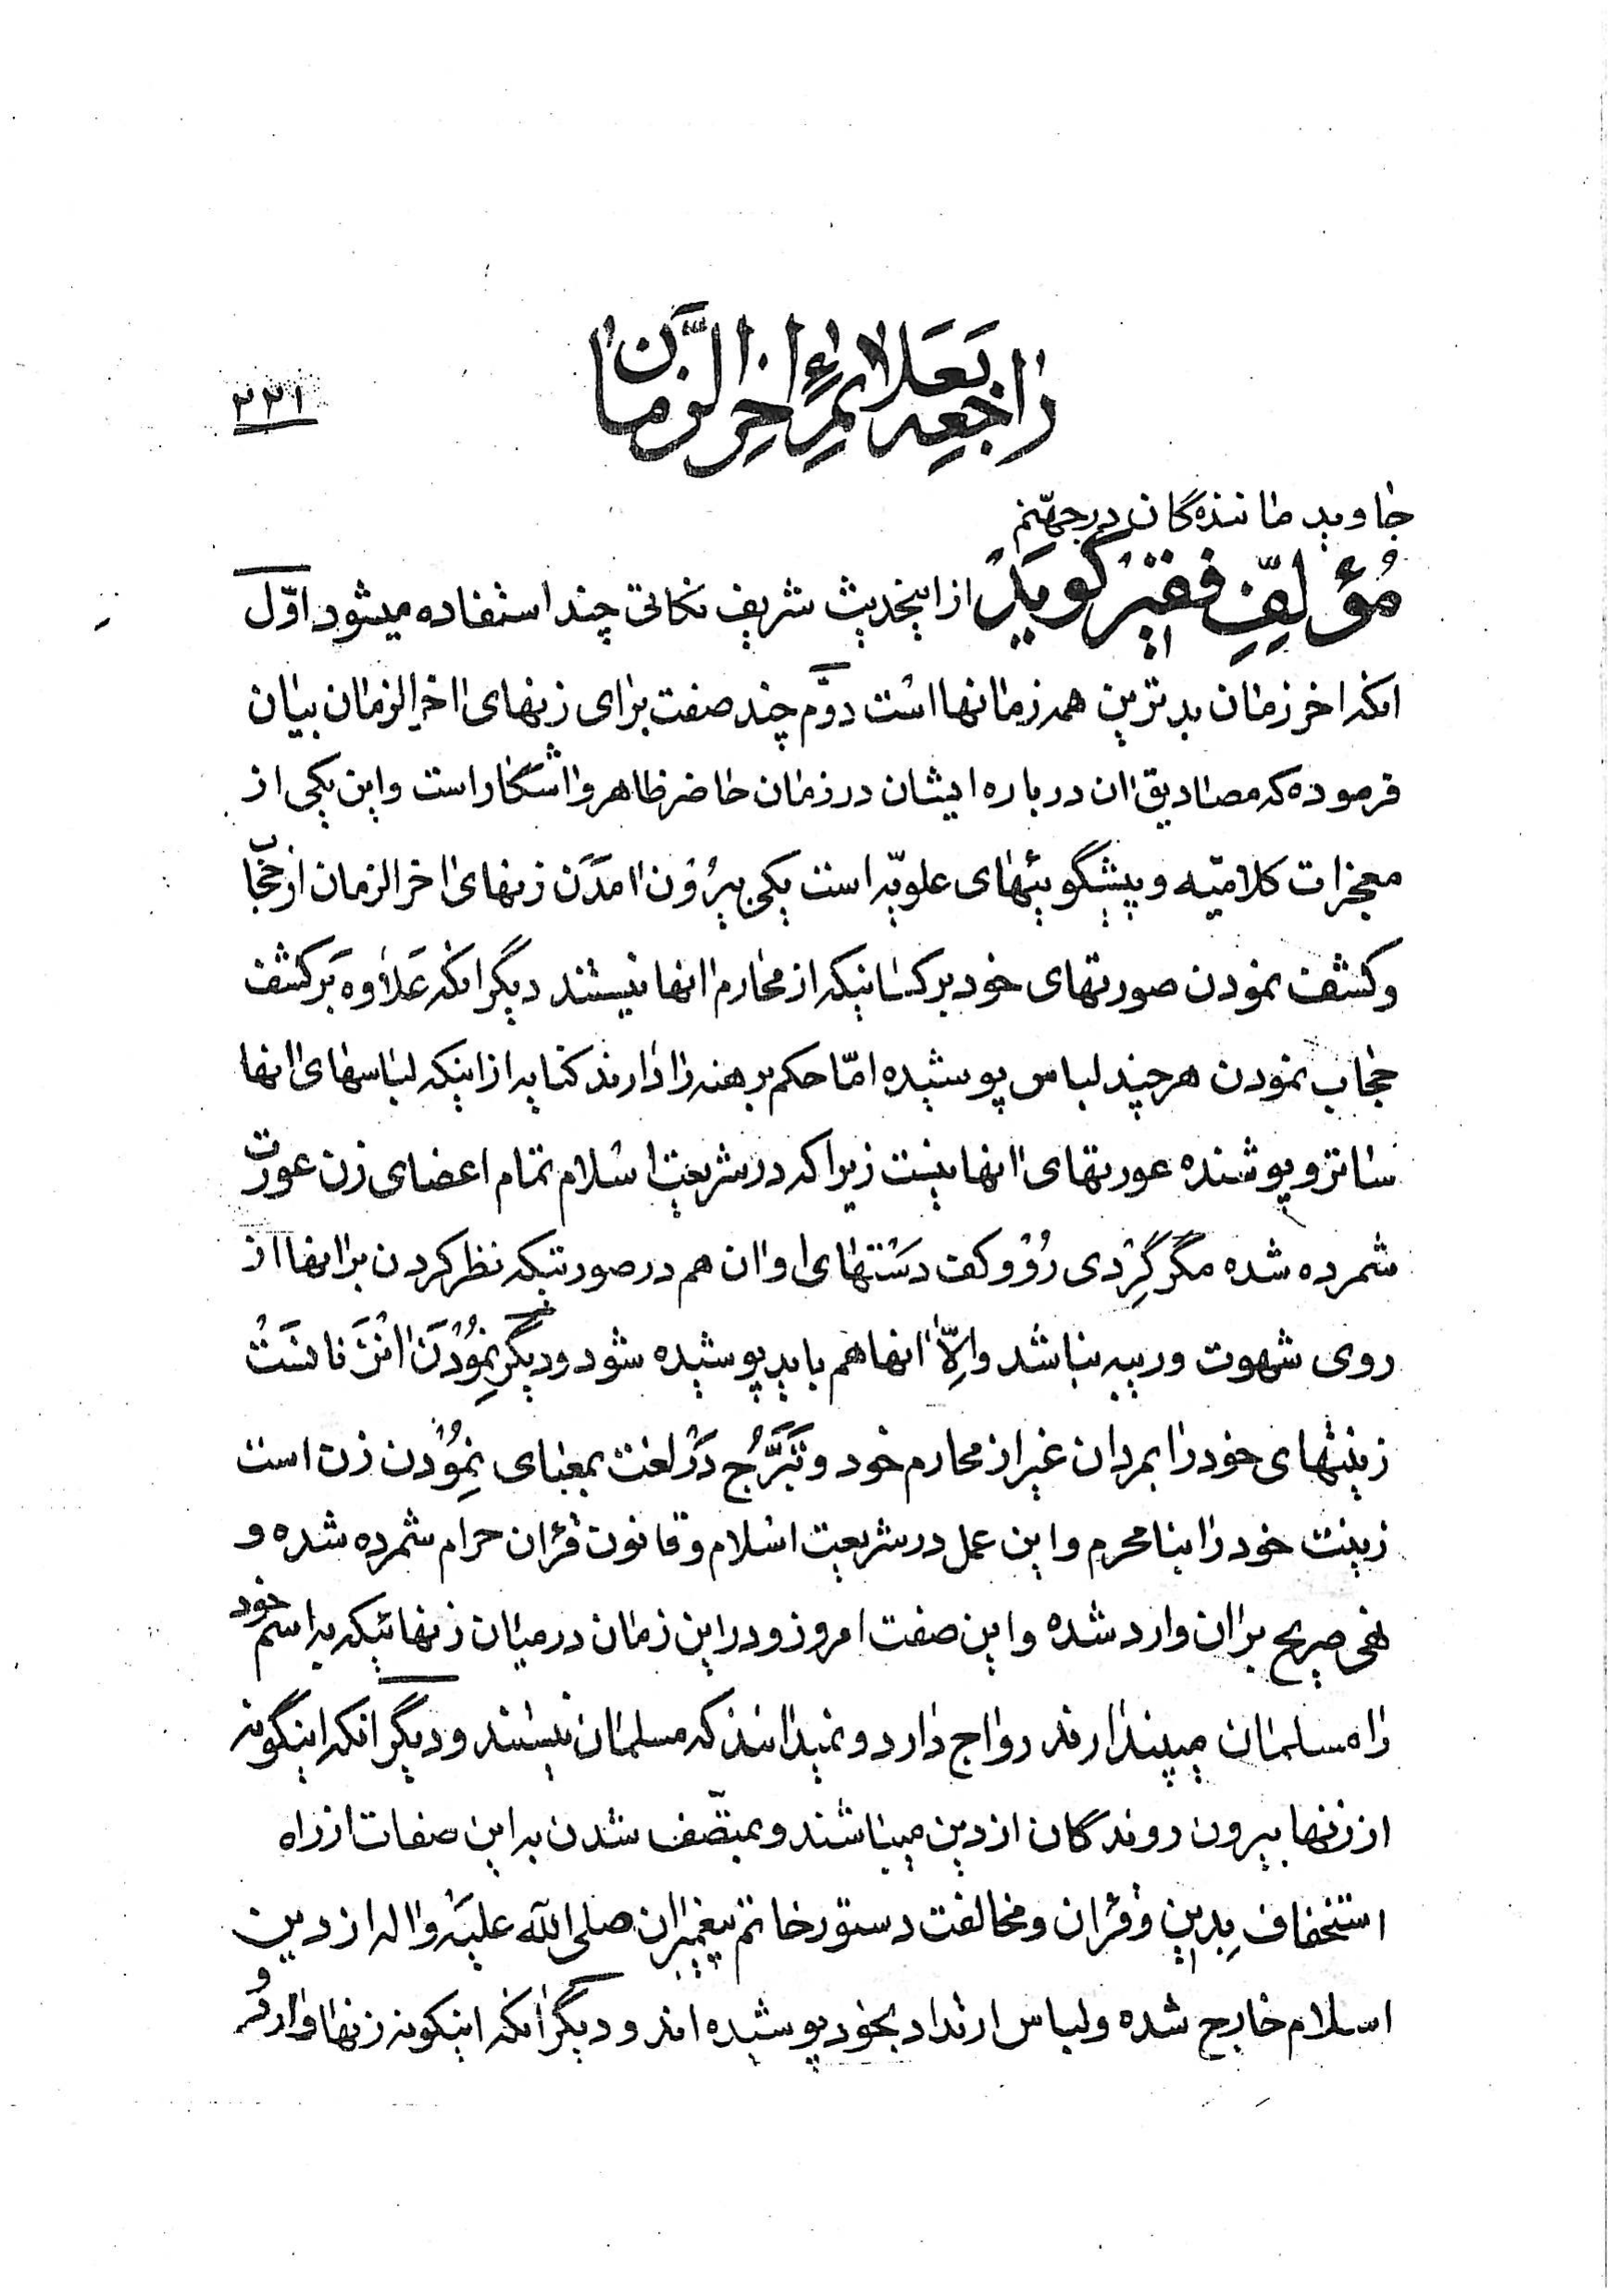 راجعه بعلائم اخرالزمان
۲۲۱
جاوید ماننده‌گان در جهنّم
مُؤلِّفِ فقیر گوید از اینحدیث شریف نکاتی چند استفاده میشود اوّل
انکه اخر زمان بدترین همه زمانها است دوّم چند صفت برای زنهای اخرالزمان بیان
فرموده که مصادیق ان درباره ایشان در زمان حاضر ظاهر و اشکار است و این یکی از
معجزات کلامیّه و پیشگوئیهای علویّه است یکی بیرُون امدَن زنهای اخرالزمان از حجاب
و کشف نمودن صورتهای خود بر کسانیکه از محارم انها نیستند دیگر انکه عَلاوه بَر کشف
حجاب نمودن هر چند لباس پوشیده امّا حکم برهنه را دارند کنایه از اینکه لباسهای انها
ساتر و پوشنده عورتهای انها نیست زیرا که در شریعت اسلام تمام اعضای زن عورت
شمرده شده مگر گِردی رُو و کف دَستهای او ان هم در صورتیکه نظر کردن بر انها از
روی شهوت و ریبه نباشد و اِلّا انها هم باید پوشیده شود و دیگر نِمُودَن انزَنانست
زینتهای خود را بمردان غیر از محارم خود و تَبَرُّج دَر لغت بمعنای نِمُودن زن است
زینت خود را بنامحرم و این عمل در شریعت اسلام و قانون قران حرام شمرده شده و
نهی صریح بر ان وارد شده و این صفت امروز و در این زمان در میان زنهائیکه به اسم خود
را مسلمان میپندارند رواج دارد و نمیدانند که مسلمان نیستند و دیگر انکه اینگونه
از زنها بیرون روندگان از دین میباشند و بمتّصف شدن به این صفات از راه
استخفاف بِدین و قران و مخالفت دستور خاتم پیغمبران صلی الله علیه و اله از دین
اسلام خارج شده و لباس ارتداد بخود پوشیده اند و دیگر انکه اینگونه زنها وارد و